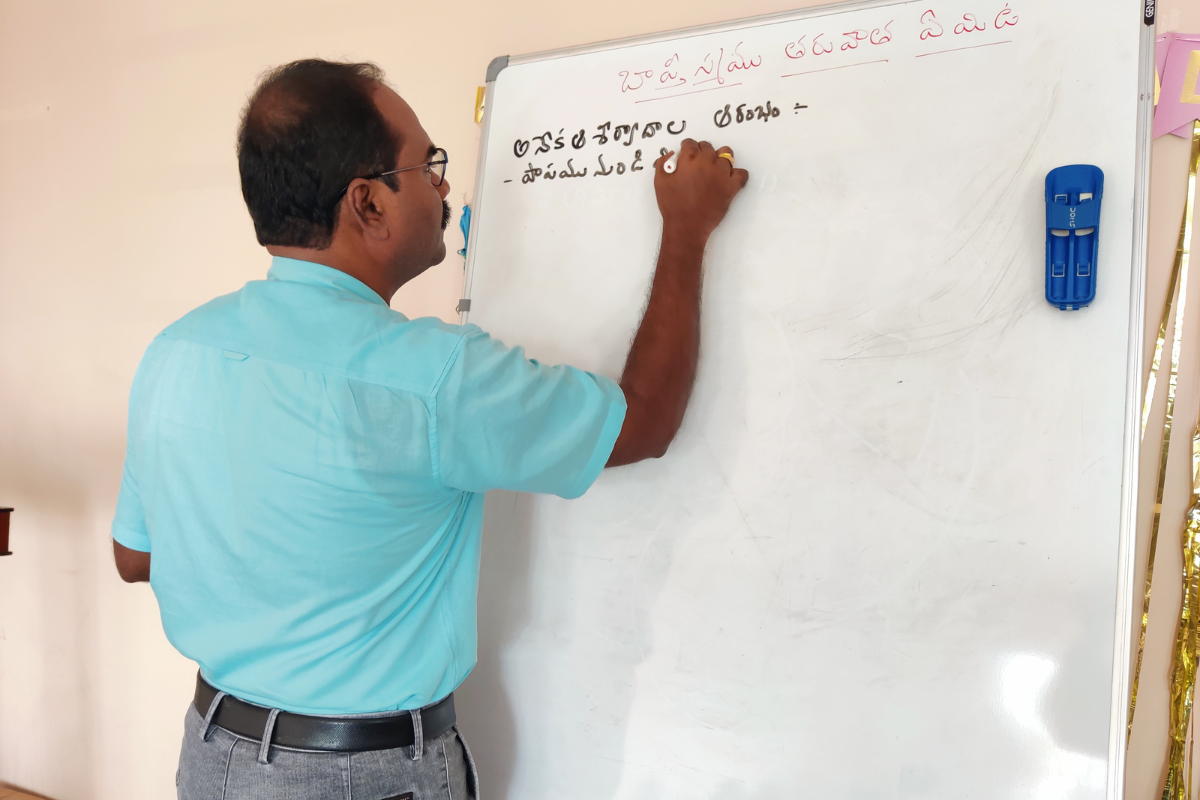 బాప్తిస్మము తరువాత ఏమిటి
అనేక ఆశీర్వాదాల ఆరంభం :-
- పాపము నుండి